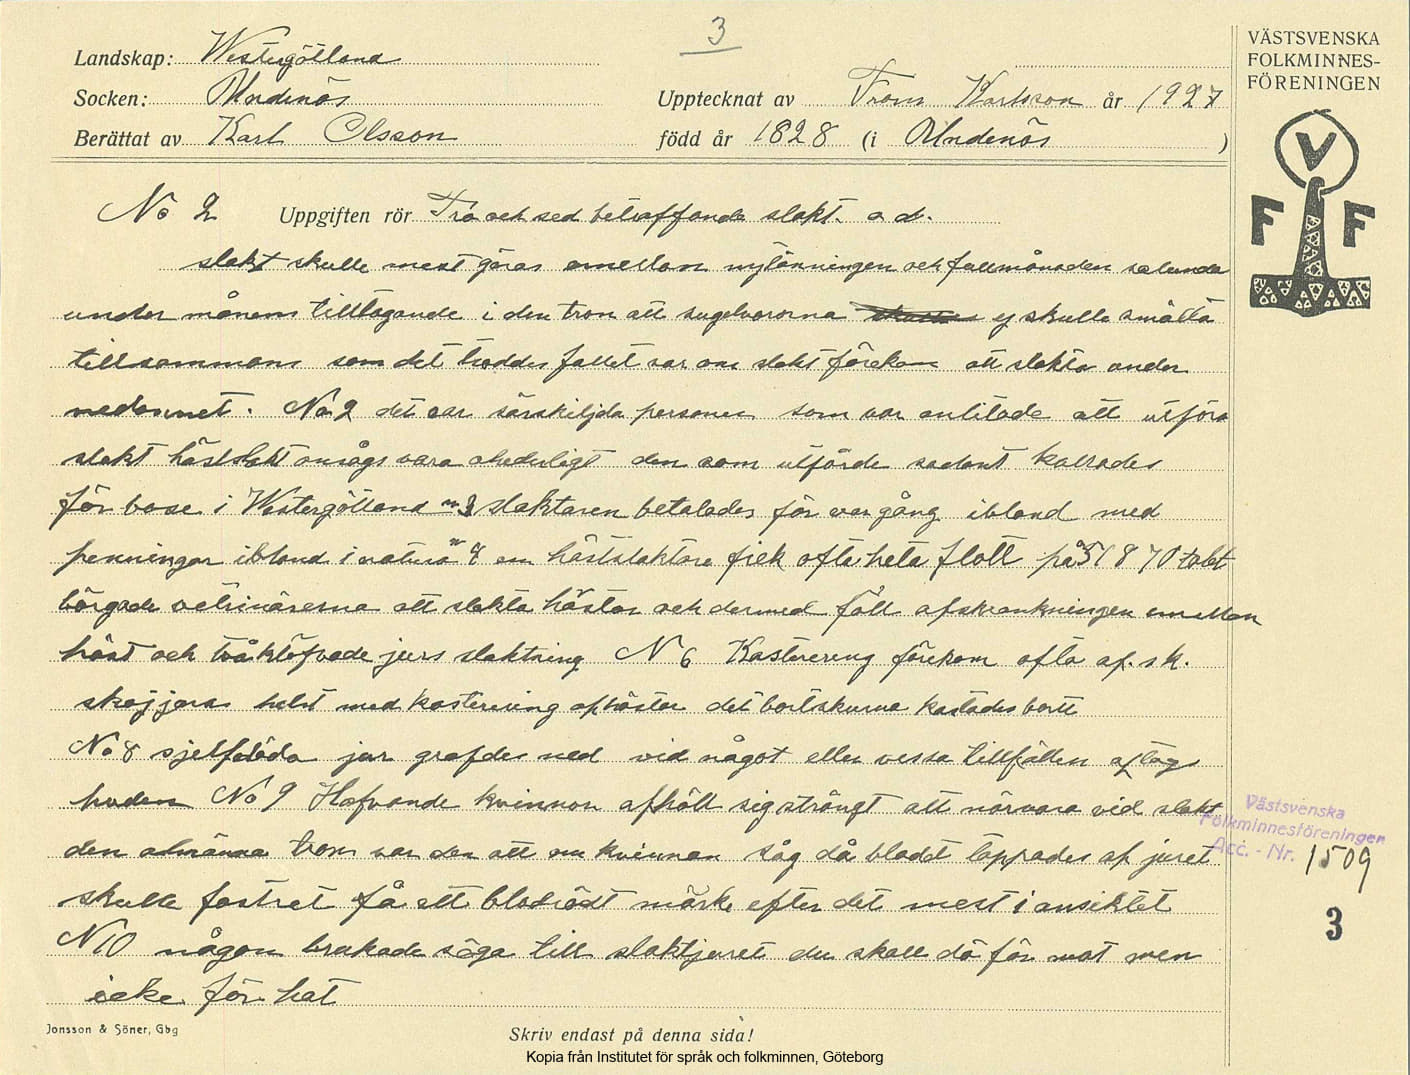 3
VÄSTSVENSKA
FOLKMINNES-
FÖRENINGEN
Landskap: Westergötland
Socken: Undenäs
Upptecknat av Frans Karlsson år 1927
Berättat av Karl Olsson
född år 1828 (i Undenäs )
V
F F
No 2 Uppgiften rör Tro och sed beträffande slakt. o d.
slakt skulle mest göras emellan nytänningen och fullmånaden sålunda
under månens tilltagande i den tron att sugelvarorna ej skulle smälta
tillsammans som det troddes fallet var om slakt förekom att slakta under
nedannet. No 2 det var särskiljda personer som var anlitade att utföra
slakt hästslakt ansågs vara ohederligt den som utförde sådant kallades
för base i Westergötland "3 slaktaren betalades för var gång ibland med
penningar ibland i natura "4 en hästslaktare fick ofta heta flått på 1870 talet
började vetrinärerna att slakta hästar och dermed föll afskrankningen emellan
häst och tvåklöfvade jurs slaktning N 6 Kastrering förekom ofta af. sk.
skojjare helst med kastrering af hästar det bortskurna kastades bort
No 8 sjelfdöda jur grafdes ned vid något eller vessa tillfällen aftogs
huden No 9 Hafvande kvinnor afhöll sig strängt att närvara vid slakt
den almänna tron var den att om kvinnan såg då blodet tappades af juret
skulle fostret få ett blodrödt märke efter det mest i ansiktet
N 10 någon brukade säga till slaktjuret du skall dö för mat men
icke för hat
Västsvenska
Folkminnesföreningen
Acc. - Nr. 1509
3
Jonsson & Söner, Gbg
Skriv endast på denna sida!
Kopia från Institutet för språk och folkminnen, Göteborg